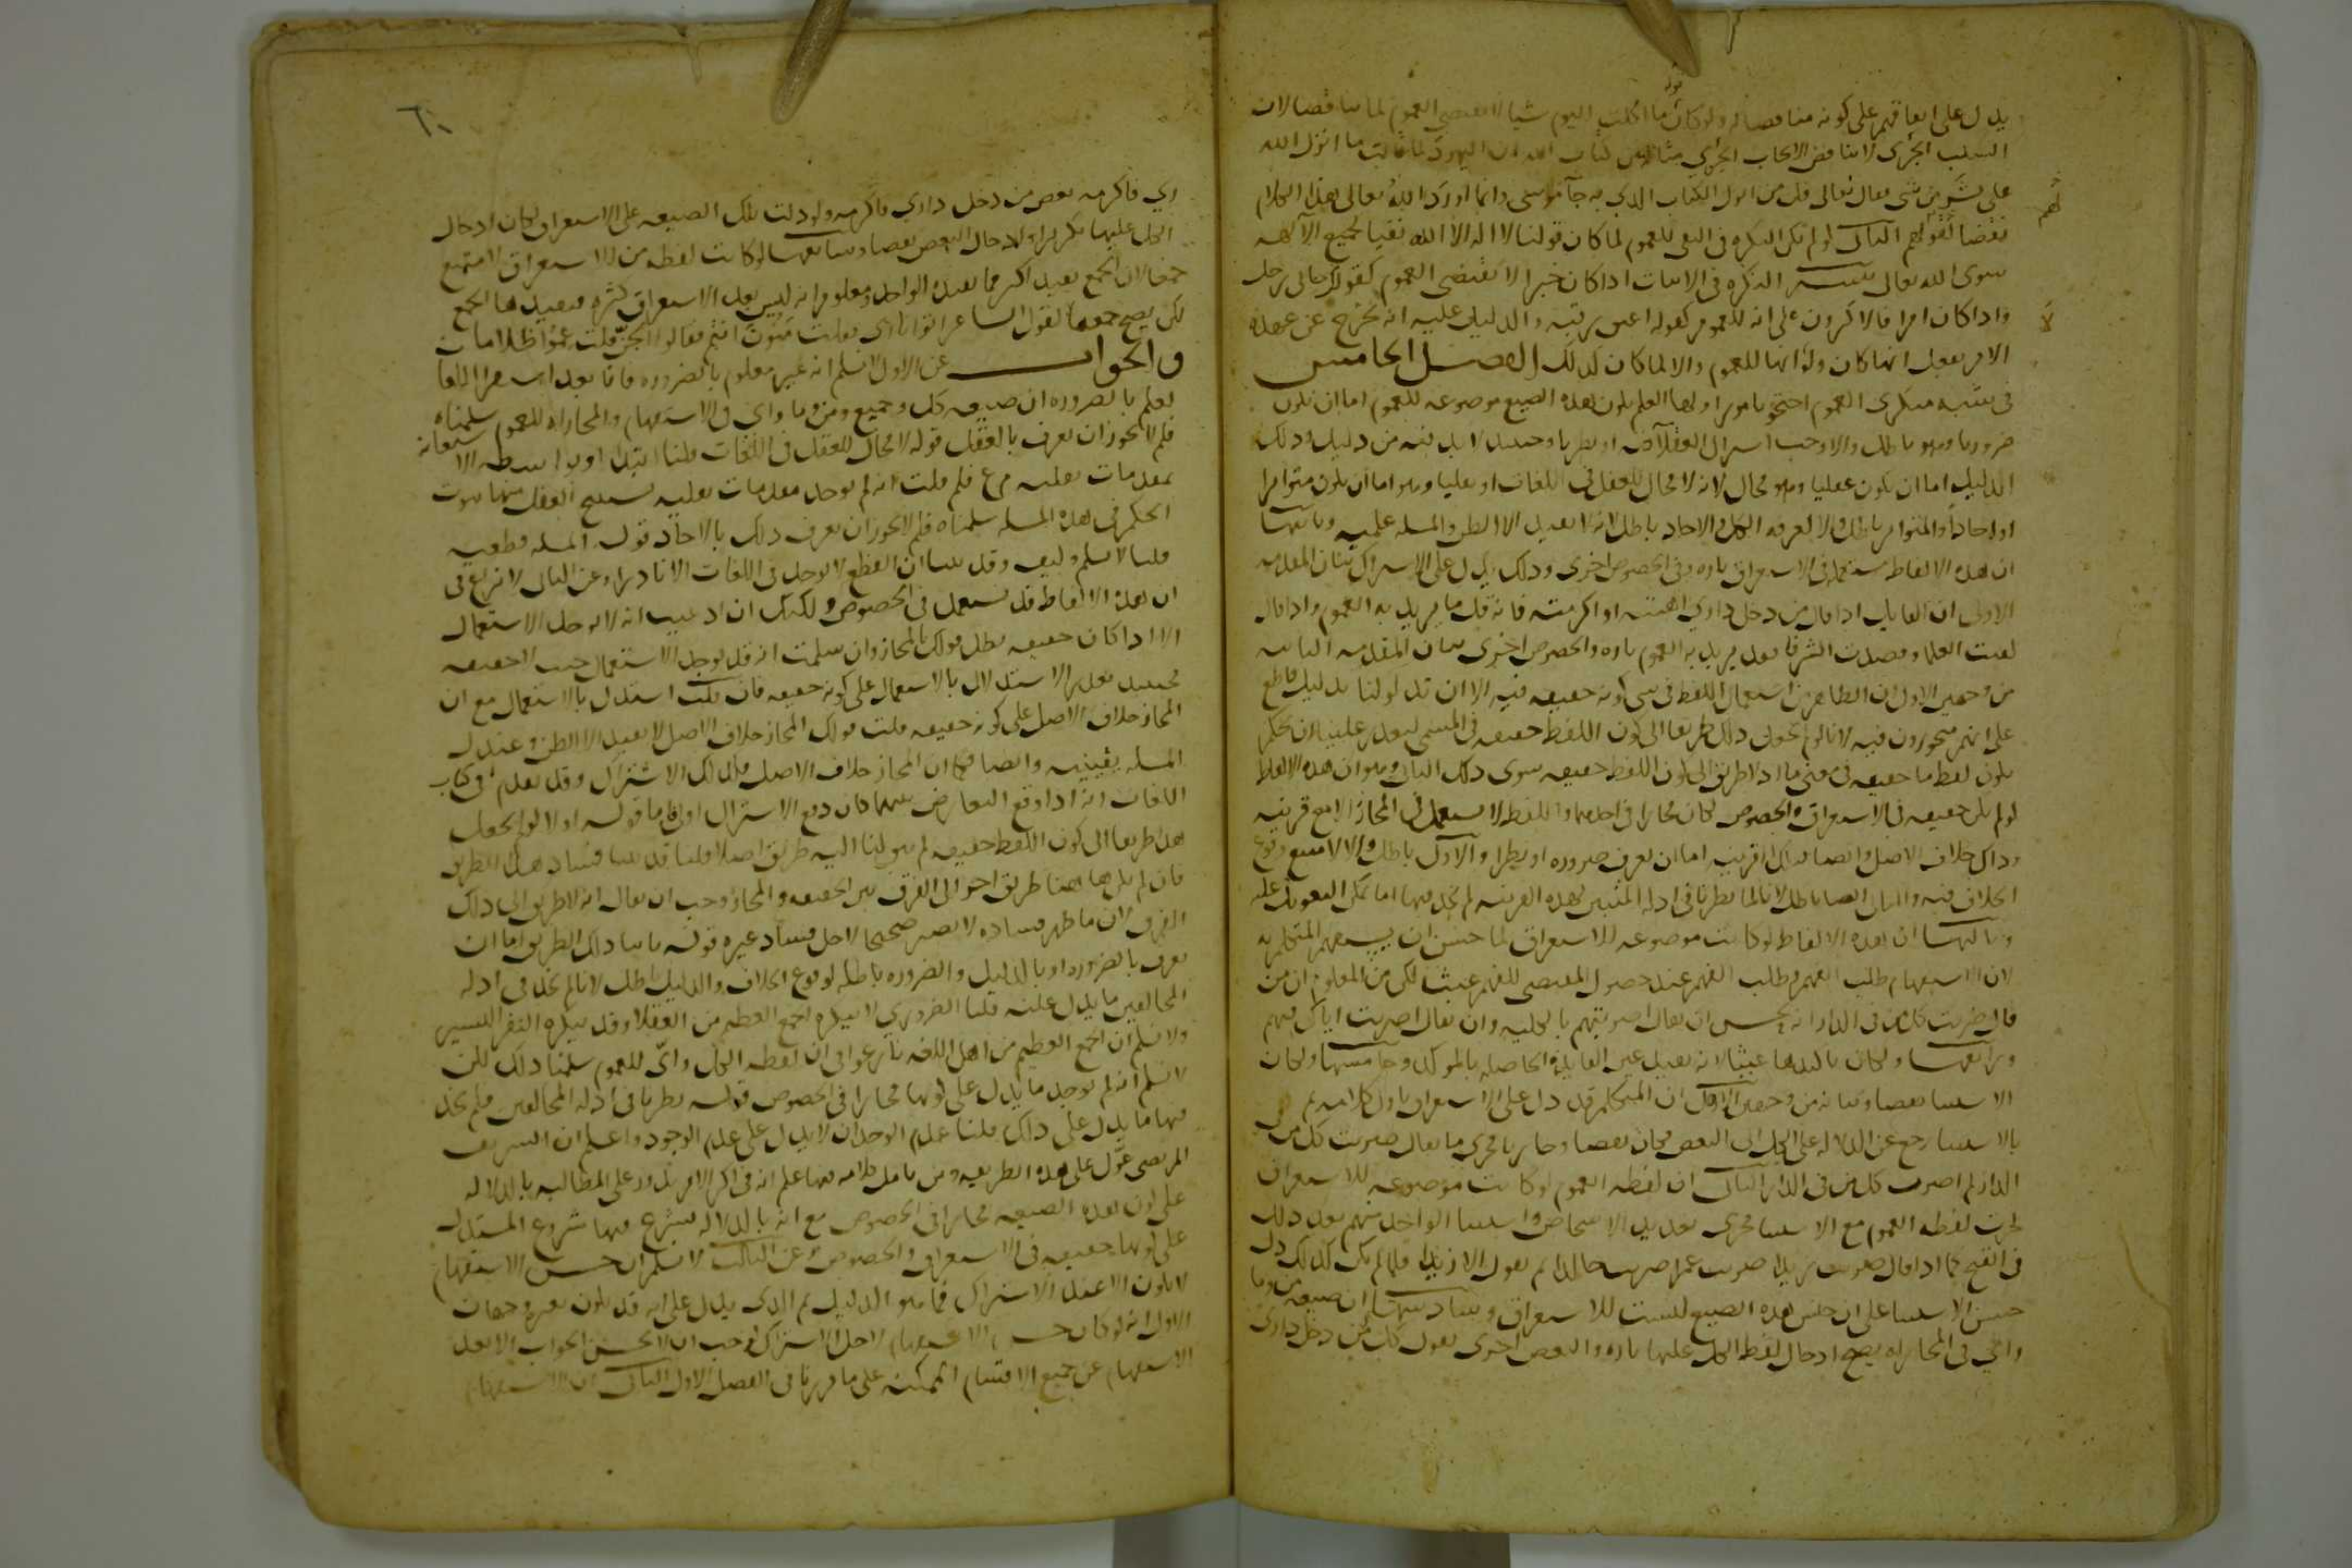 يدل على اتفاقهم على كونه مناقضا له ولو كان قوله ما اكلت اليوم شيا لا يقتضي العموم لما تناقضا لان
السلب الجزئي لا يناقض الايجاب الجزئي مثاله من كتاب الله ان اليهود لما قالت ما انزل الله
على بشر من شي فقال تعالى قل من انزل الكتاب الذي به جا موسى وانما اورد الله تعالى هذا الكلام
نقضا لقولهم الثاني لو لم تكن النكرة في النفي للعموم لما كان قولنا لا اله الا الله نفيا لجميع الالهة
سوى الله تعالى تنبيه النكرة في الاثبات اذا كان خبرا لا تقتضي العموم كقولك جاني رجل
واذا كان امرا فالاكثرون على انه للعموم كقوله اعتق رقبة والدليل عليه انه يخرج عن عهدة
الامر بفعل ايها كان ولولا انها للعموم والا لما كان كذلك الفصل الخامس
في شبه منكري العموم احتجوا بامور اولها العلم بكون هذه الصيغ موضوعة للعموم اما ان يكون
ضروريا وهو باطل والا لوجب اشتراك العقلا فيه او نظريا وحينئذ لا بد فيه من دليل وذلك
الدليل اما ان يكون عقليا وهو محال لانه لا مجال للعقل في اللغات او نقليا وهو اما ان يكون متواترا
او احادا والمتواتر باطل والا لعرفه الكل والاحاد باطل لانه لا يفيد الا الظن والمسلة علمية وثانيها
ان هذه الالفاظ مستعملة في الاستغراق تارة وفي الخصوص اخرى وذلك يدل على الاشتراك بيان المقدمة
الاولى ان القايل اذا قال من دخل داري اهنته او اكرمته فانه قل ما يريد به العموم واذا قال
لقيت العلما وقصدت الشرفا فقد يريد به العموم تارة والخصوص اخرى بيان المقدمة الثانية
من وجهين الاول ان الظاهر من استعمال اللفظ في شي كونه حقيقة فيه الا ان تدلونا بدليل قاطع
على انهم متجوزون فيه لانا لو لم نجعل ذلك طريقا الى كون اللفظ حقيقة في المسمى لتعذر علينا ان نحكم
بكون لفظ ما حقيقة في معنى ما اذ لا طريق الى كون اللفظ حقيقة سوى ذلك الثاني وهو ان هذه الالفاظ
لو لم تكن حقيقة في الاستغراق والخصوص لكان مجازا في احدهما واللفظ لا يستعمل في المجاز الا مع قرينة
وذاك خلاف الاصل وايضا فتلك القرينة اما ان تعرف ضرورة او نظرا والاول باطل والا لامتنع وقوع
الخلاف فيه والثاني ايضا باطل لانا لما نظرنا في ادلة المثبتين لهذه القرينة لم نجد فيها ما يمكن التعويل عليه
وثالثها ان هذه الالفاظ لو كانت موضوعة للاستغراق لما حسن ان يستفهم المتكلم به
لان الاستفهام طلب الفهم وطلب الفهم عند حصول المقتضي للفهم عبث لكن من المعلوم ان من
قال ضربت كل من في الدار انه يحسن ان يقال اضربتهم بالكلية وان يقال اضربت اباك فيهم
ورابعها ولكان تاكيدها عبثا لانه يفيد عين الفايدة الحاصلة بالموكد وخامسها ولكان
الاستثنا نقضا وبيانه من وجهين الاول ان المتكلم قد دل على الاستغراق باول كلامه ثم
بالاستثنا رجع عن الدلالة على الكل الى البعض فكان نقضا وجاريا مجرى ما يقال ضربت كل من في
الدار لم اضرب كل من في الدار الثاني ان لفظة العموم لو كانت موضوعة للاستغراق
لجرت لفظة العموم مع الاستثنا مجرى تعديد الاشخاص واستثنا الواحد منهم بعد ذلك
في القبح كما اذا قال ضربت زيدا ضربت عمرا ضربت خالدا ثم يقول الا زيدا فلما لم يكن كذلك دل
حسن الاستثنا على ان جنس هذه الصيغ ليست للاستغراق وسادسها ان صيغة من وما
واي في المجازاة يصح ادخال لفظ الكل عليها تارة والبعض اخرى تقول كل من دخل داري
لهم
لا
٦٠
ري فاكرمه بعض من دخل داري فاكرمه ولو دلت تلك الصيغة على الاستغراق لكان ادخال
الكل عليها تكريرا وادخال البعض نقضا وسابعها لو كانت لفظة من للاستغراق لامتنع
جمعها لان الجمع يفيد اكثر مما يفيده الواحد ومعلوم انه ليس بعد الاستغراق كثرة فيفيدها الجمع
لكن يصح جمعها لقول الشاعر اتوا ناري فقلت منون انتم فقالوا الجن قلت عموا ظلاما
والجواب عن الاول لا نسلم انه غير معلوم بالضرورة فانا بعد استقرا اللغات
نعلم بالضرورة ان صيغة كل وجميع ومن وما واي في الاستفهام والمجازاة للعموم سلمناه
فلم لا يجوز ان يعرف بالعقل قوله لا مجال للعقل في اللغات قلنا ابتدا او بواسطة الاستعانة
بمقدمات نقلية م ع فلم قلت انه لم توجد مقدمات نقلية يستنتج العقل منها ثبوت
الحكم في هذه المسلة سلمناه فلم لا يجوز ان يعرف ذلك بالاحاد قوله المسلة قطعية
قلنا لا نسلم وكيف وقد بينا ان القطع لا يوجد في اللغات الا نادرا وعن الثاني لا نزاع في
ان هذه الالفاظ قد تستعمل في الخصوص ولكنك ان ادعيت انه لا يوجد الاستعمال
الا اذا كان حقيقة بطل قولك بالمجاز وان سلمت انه قد يوجد الاستعمال حيث لا حقيقة
فحينئذ تعذر الاستدلال بالاستعمال على كونه حقيقة فان قلت استدل بالاستعمال مع ان
المجاز خلاف الاصل على كونه حقيقة قلت قولك المجاز خلاف الاصل لا يفيد الا الظن وعندك
المسلة يقينية وايضا فكما ان المجاز خلاف الاصل فكذلك الاشتراك وقد تقدم في كتاب
اللغات انه اذا وقع التعارض بينهما كان دفع الاشتراك اولى واما قوله اولا لو لم نجعل
هذا طريقا الى كون اللفظ حقيقة لم يبق لنا اليه طريق اصلا قلنا قد بينا فساد هذا الطريق
فان لم يكن هاهنا طريق اخر الى الفرق بين الحقيقة والمجاز وجب ان يقال انه لا طريق الى ذلك
الفرق لان ما ظهر فساده لا يصير صحيحا لاجل فساد غيره قوله ثانيا ذلك الطريق اما ان
يعرف بالضرورة او بالدليل والضرورة باطلة لوقوع الخلاف والدليل باطل لانا لم نجد في ادلة
المخالفين ما يدل عليه قلنا الضروري لا ينكره الجمع العظيم من العقلا وقد ينكره النفر اليسير
ولا نسلم ان الجمع العظيم من اهل اللغة نازعوا في ان لفظة الكل واي للعموم سلمنا ذلك لكن
لا نسلم انه لم يوجد ما يدل على كونها مجازا في الخصوص قوله نظرنا في ادلة المخالفين فلم نجد
فيها ما يدل على ذلك قلنا عدم الوجدان لا يدل على عدم الوجود واعلم ان الشريف
المرتضى عول على هذه الطريقة ومن تامل كلامه فيها علم انه في اكثر الامر يدور على المطالبة بالدلالة
على كون هذه الصيغة مجازا في الخصوص مع انه بالدلالة شرع فيها شروع المستدل
على كونها حقيقة في الاستغراق والخصوص وعن الثالث لا نسلم ان حسن الاستفهام
لا يكون الا عند الاشتراك فما هو الدليل ثم الذي يدل على انه قد يكون لغيره وجهان
الاول انه لو كان حسن الاستفهام لاجل الاشتراك لوجب ان لا يحسن الجواب الا بعد
الاستفهام عن جميع الاقسام الممكنة على ما قررنا في الفصل الاول الثاني ان الاستفهام